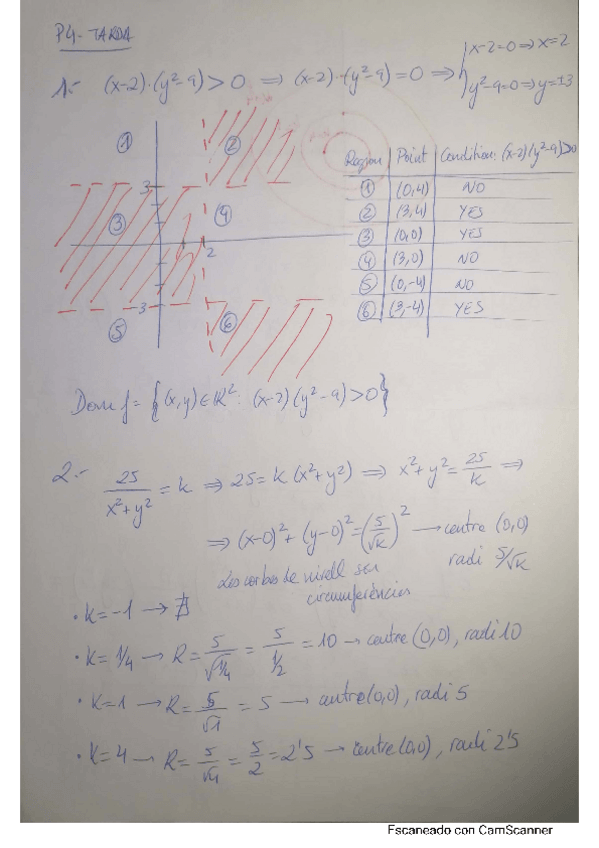 P4- TARDA
1.- (x-2)·(y²-9)>0 ⇒ (x-2)·(y²-9)=0 ⇒ { x-2=0 ⇒ x=2
y²-9=0 ⇒ y=±3
① ② ③ ④ ⑤ ⑥
3
2
3
Region | Point | Condition: (x-2)(y²-9)>0
① | (0,4) | NO
② | (3,4) | YES
③ | (0,0) | YES
④ | (3,0) | NO
⑤ | (0,-4) | NO
⑥ | (3,-4) | YES
Dom f = {(x,y)∈ℝ²: (x-2)(y²-9)>0}
2.- 25/(x²+y²) = k ⇒ 25=k(x²+y²) ⇒ x²+y²=25/k ⇒
⇒ (x-0)²+(y-0)²=(5/√k)² → centre (0,0)
radi 5/√k
Les corbes de nivell son
circumferències
· k=-1 → ∄
· k=1/4 → R=5/√(1/4) = 5/(1/2) = 10 → centre (0,0), radi 10
· k=1 → R=5/√1 = 5 → centre (0,0), radi 5
· k=4 → R=5/√4 = 5/2 = 2'5 → centre (0,0), radi 2'5
Escaneado con CamScanner